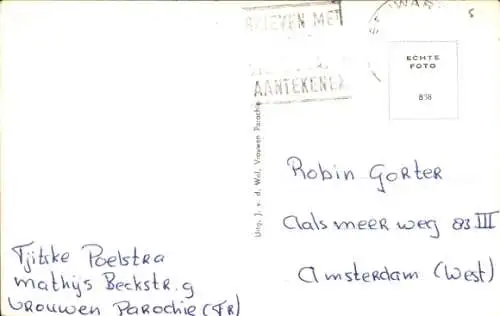 BRIEVEN MET
AANTEKENEN
ECHTE
FOTO
858
Uitg. J. v. d. Wal, Vrouwen Parochie
Robin Gorter
Aalsmeer weg 83 III
Amsterdam (West)
Tjitske Poelstra
Mathijs Beckstr. 9
Vrouwen Parochie (FR)